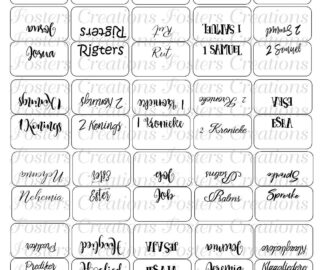 Fosters Creations Fosters Creations
Josua Rigters Rut 1 SAMUEL 2 Samuel
Josua Rigters Rut 1 SAMUEL 2 Samuel
1 Konings 2 Konings 1 Kronieke 2 Kronieke ESRA
1 Konings 2 Konings 1 Kronieke 2 Kronieke ESRA
Nehemia Ester Job Psalms Spreuke
Nehemia Ester Job Psalms Spreuke
Prediker Hooglied JESAJA Jeremia Klaagliedere
Prediker Hooglied JESAJA Jeremia Klaagliedere